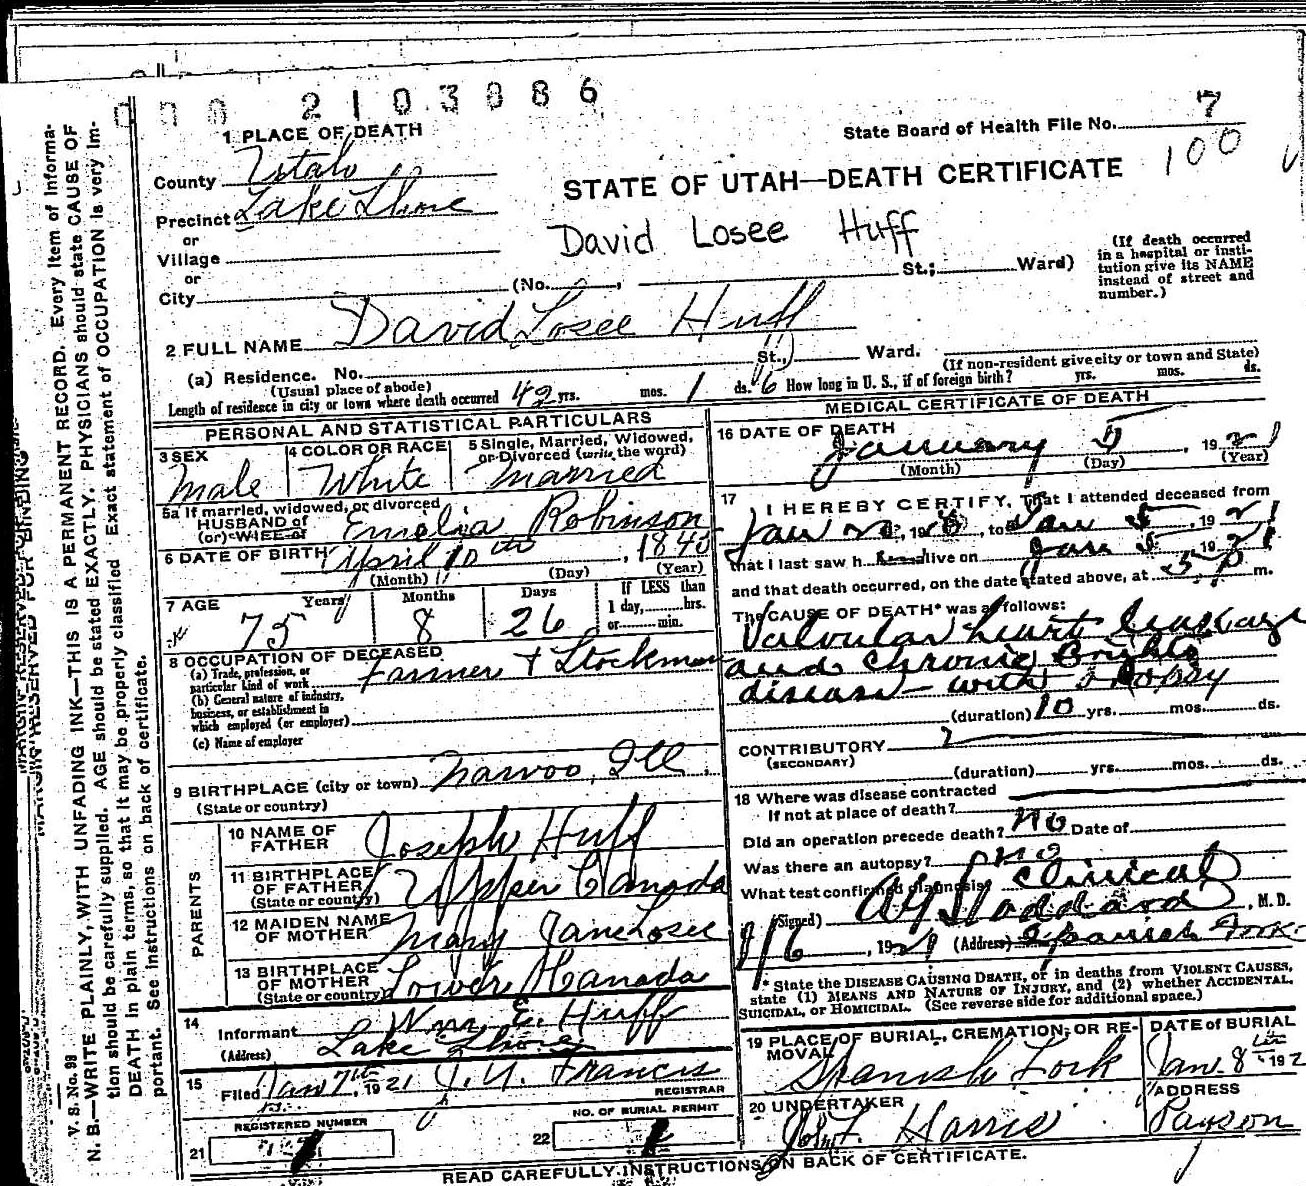 2103886
1 PLACE OF DEATH
State Board of Health File No. 7
100
County Utah
STATE OF UTAH—DEATH CERTIFICATE
Precinct Lake Shore
David Losee Huff
or
Village
or
City (No. , St.; Ward)
(If death occurred
in a hospital or insti-
tution give its NAME
instead of street and
number.)
2 FULL NAME David Losee Huff
(a) Residence. No. St., Ward.
(Usual place of abode)
(If non-resident give city or town and State)
Length of residence in city or town where death occurred 42 yrs. mos. 1 ds. 6 How long in U. S., if of foreign birth? yrs. mos. ds.
PERSONAL AND STATISTICAL PARTICULARS
3 SEX
Male
4 COLOR OR RACE
White
5 Single, Married, Widowed,
or Divorced (write the word)
Married
5a If married, widowed, or divorced
HUSBAND of
(or) WIFE of
Emelia Robinson
6 DATE OF BIRTH April 10th, 1845
(Month) (Day) (Year)
7 AGE Years Months Days
75 8 26
If LESS than
1 day, hrs.
or min.
8 OCCUPATION OF DECEASED
(a) Trade, profession, or
particular kind of work Farmer & Stockman
(b) General nature of industry,
business, or establishment in
which employed (or employer)
(c) Name of employer
9 BIRTHPLACE (city or town) Nauvoo, Ill
(State or country)
PARENTS
10 NAME OF
FATHER Joseph Huff
11 BIRTHPLACE
OF FATHER
(State or country) Upper Canada
12 MAIDEN NAME
OF MOTHER Mary Jane Losee
13 BIRTHPLACE
OF MOTHER
(State or country) Lower Canada
14
Informant Wm E. Huff
(Address) Lake Shore
15
Filed Jan 7th, 1921 J. A. Francis
REGISTRAR
REGISTERED NUMBER
21 1
NO. OF BURIAL PERMIT
22 1
MEDICAL CERTIFICATE OF DEATH
16 DATE OF DEATH
January 5, 1921
(Month) (Day) (Year)
17
I HEREBY CERTIFY, That I attended deceased from
Jan , 19 , to Jan 5, 1921
that I last saw h alive on Jan 5 1921
and that death occurred, on the date stated above, at 5 P m.
The CAUSE OF DEATH* was as follows:
Valvular heart leakage
and chronic Brights
disease - with dropsy
(duration) 10 yrs. mos. ds.
CONTRIBUTORY
(SECONDARY)
(duration) yrs. mos. ds.
18 Where was disease contracted
If not at place of death?
Did an operation precede death? No Date of
Was there an autopsy? No
What test confirmed diagnosis? Clinical
(Signed) Stoddard, M. D.
1/6, 1921 (Address) Spanish Fork
* State the DISEASE CAUSING DEATH, or in deaths from VIOLENT CAUSES,
state (1) MEANS AND NATURE OF INJURY, and (2) whether ACCIDENTAL,
SUICIDAL, OR HOMICIDAL. (See reverse side for additional space.)
19 PLACE OF BURIAL, CREMATION, OR RE-
MOVAL
Spanish Fork
DATE of BURIAL
Jan. 8th 192
20 UNDERTAKER
Harris
ADDRESS
Payson
READ CAREFULLY INSTRUCTIONS ON BACK OF CERTIFICATE.
MARGIN RESERVED FOR BINDING
V. S. No. 99
N. B.—WRITE PLAINLY, WITH UNFADING INK—THIS IS A PERMANENT RECORD. Every item of Informa-
tion should be carefully supplied. AGE should be stated EXACTLY. PHYSICIANS should state CAUSE OF
DEATH in plain terms, so that it may be properly classified. Exact statement of OCCUPATION is very Im-
portant. See instructions on back of certificate.